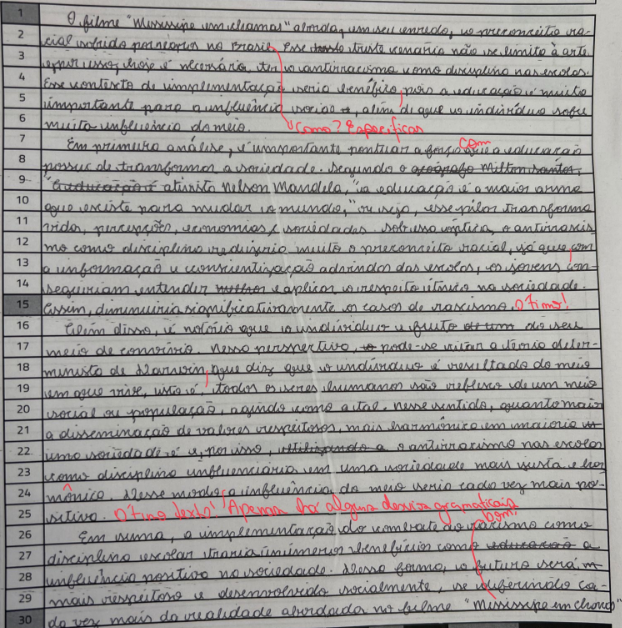 1 O filme "Mississipe em chamas" aborda, em seu enredo, o preconceito ra-
2 cial sofrido por negros no Brasil, esse triste cenário não se limita à arte.
3 e por isso, hoje é necessário ter o antirracismo como disciplina nas escolas.
4 Esse contexto de implementação seria benéfico, pois a educação é muito
5 importante para a influência social, além de que o indivíduo sofre
6 muita influência do meio.
Como? Especificar
7 Em primeira análise, é importante pontuar a força que a educação
com
8 possui de transformar a sociedade. Segundo o geógrafo Milton Santos,
9 "a educação é ativista Nelson Mandela, "a educação é a maior arma
10 que existe para mudar o mundo," ou seja, esse pilar transforma
11 vidas, percepção, economias, sociedades. sob essa óptica, o antirracis
12 mo como disciplina reduziria muito o preconceito racial, já que com
13 a informação e conscientização advindas das escolas, os jovens con-
14 seguiriam entender e aplicar o respeito étnico na sociedade.
15 Assim, diminuiria significativamente os casos de racismo. Ótimo!
16 Além disso, é notório que o indivíduo é fruto do seu
17 meio de convívio. nessa perspectiva, pode-se citar a teoria deter-
18 minista de Darwin, que diz que o indivíduo é resultado do meio
19 em que vive, isto é, todos os seres humanos são reflexo de um meio
20 social ou população, agindo como a tal. nesse sentido, quanto maior
21 a disseminação de valores respeitosos, mais harmônico em maioria
22 uma sociedade é e, por isso, utilizando a o antirracismo nas escolas
23 como disciplina influenciaria em uma sociedade mais justa e har
24 mônica. Desse modo, a influência do meio seria cada vez mais po-
25 sitiva. Ótimo texto! Apenas há alguns desvios gramaticais
26 Em suma, a implementação do combate ao racismo como
Bom!
27 disciplina escolar traria inúmeros benefícios como educação a
28 influência positiva na sociedade. Dessa forma, o futuro será
29 mais respeitoso e desenvolvido socialmente, se diferindo ca-
30 da vez mais da realidade abordada no filme "Mississipe em chamas"